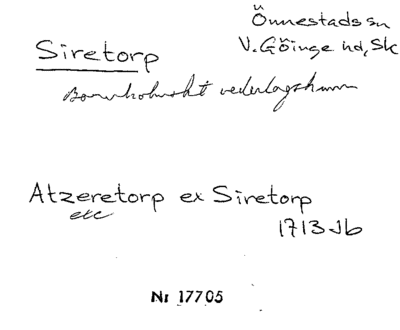 Önnestads sn
Siretorp
V. Göinge hd, Sk
Bornholmskt vederlagshemm
Atzeretorp ex Siretorp
etc
1713 Jb
Nr 17705